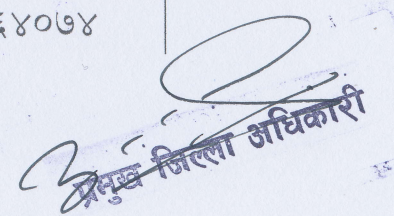 ४०७४
प्रमुख जिल्ला अधिकारी